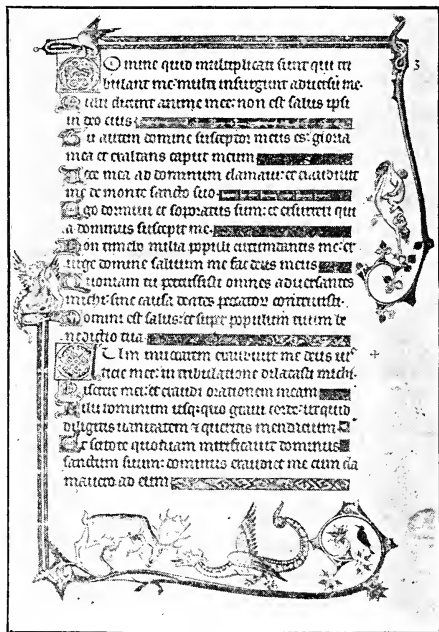 Omine quid multiplicati sunt qui tri
bulant me: multi insurgunt adversum me.
Multi dicunt anime mee: non est salus ipsi
in deo eius.
Tu autem domine susceptor meus es: gloria
mea et exaltans caput meum
Voce mea ad dominum clamavi: et exaudivit
me de monte sancto suo.
Ego dormivi et soporatus sum: et exsurrexi qui
a dominus suscepit me.
Non timebo milia populi circumdantis me: ex
urge domine salvum me fac deus meus
Quoniam tu percussisti omnes adversantes
michi sine causa dentes peccatorum contrivisti.
Domini est salus: et super populum tuum be
nedictio tua
Cum invocarem exaudivit me deus ius
ticie mee: in tribulatione dilatasti michi
Miserere mei: et exaudi orationem meam
Filii hominum usquequo gravi corde: ut quid
diligitis vanitatem et queritis mendacium
Et scitote quoniam mirificavit dominus
sanctum suum: dominus exaudiet me cum cla
mavero ad eum
3